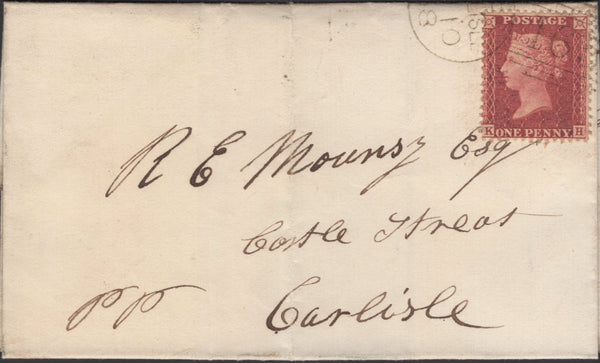 POSTAGE
K ONE PENNY H
R E Mounsy Esq
Castle Street
PP Carlisle